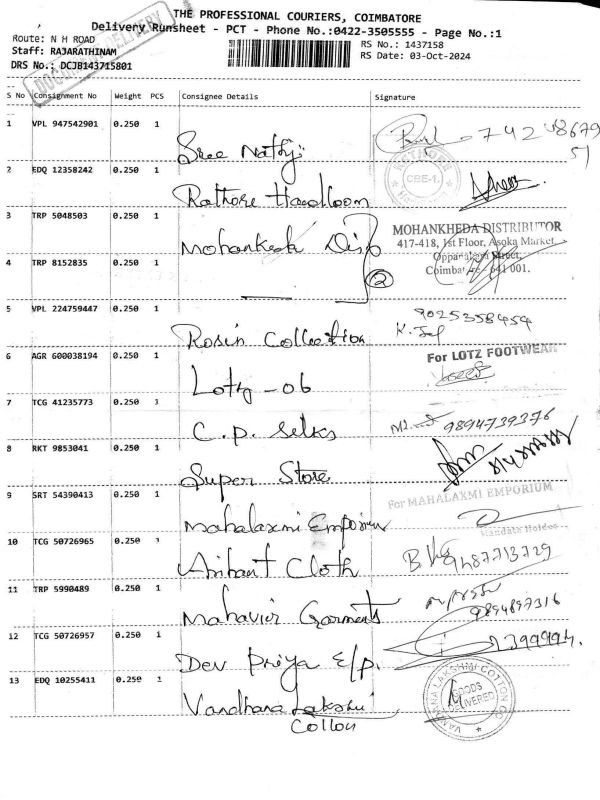 THE PROFESSIONAL COURIERS, COIMBATORE
Delivery Runsheet - PCT - Phone No.:0422-3505555 - Page No.:1
Route: N H ROAD
RS No.: 1437158
Staff: RAJARATHINAM
RS Date: 03-Oct-2024
DRS No.: DCJB143715801
S No Consignment No Weight PCS Consignee Details Signature
1 VPL 947542901 0.250 1
Sree Nathji
2 EDQ 12358242 0.250 1
CBE-1.
Rathore Handloom
3 TRP 5048503 0.250 1
Mohankheda Dis
MOHANKHEDA DISTRIBUTOR
417-418, 1st Floor, Asoka Market,
Street,
641 001.
4 TRP 8152835 0.250 1
2
5 VPL 224759447 0.250 1
Rosin Collection
9025358454
6 AGR 600038194 0.250 1
For LOTZ FOOTWEAR
Lotz - 06
7 TCG 41235773 0.250 1
C.P. Silks
9894739376
8 RKT 9853041 0.250 1
Super Store
9 SRT 54390413 0.250 1
For MAHALAXMI EMPORIUM
Mahalaxmi Emporium
10 TCG 50726965 0.250 1
Arihant Cloth
11 TRP 5990489 0.250 1
Mahavir Garments
9894897316
12 TCG 50726957 0.250 1
Dev Priya E/p.
13 EDQ 10255411 0.250 1
GOODS
DELIVERED
Vandhana Lakshmi
Cotton